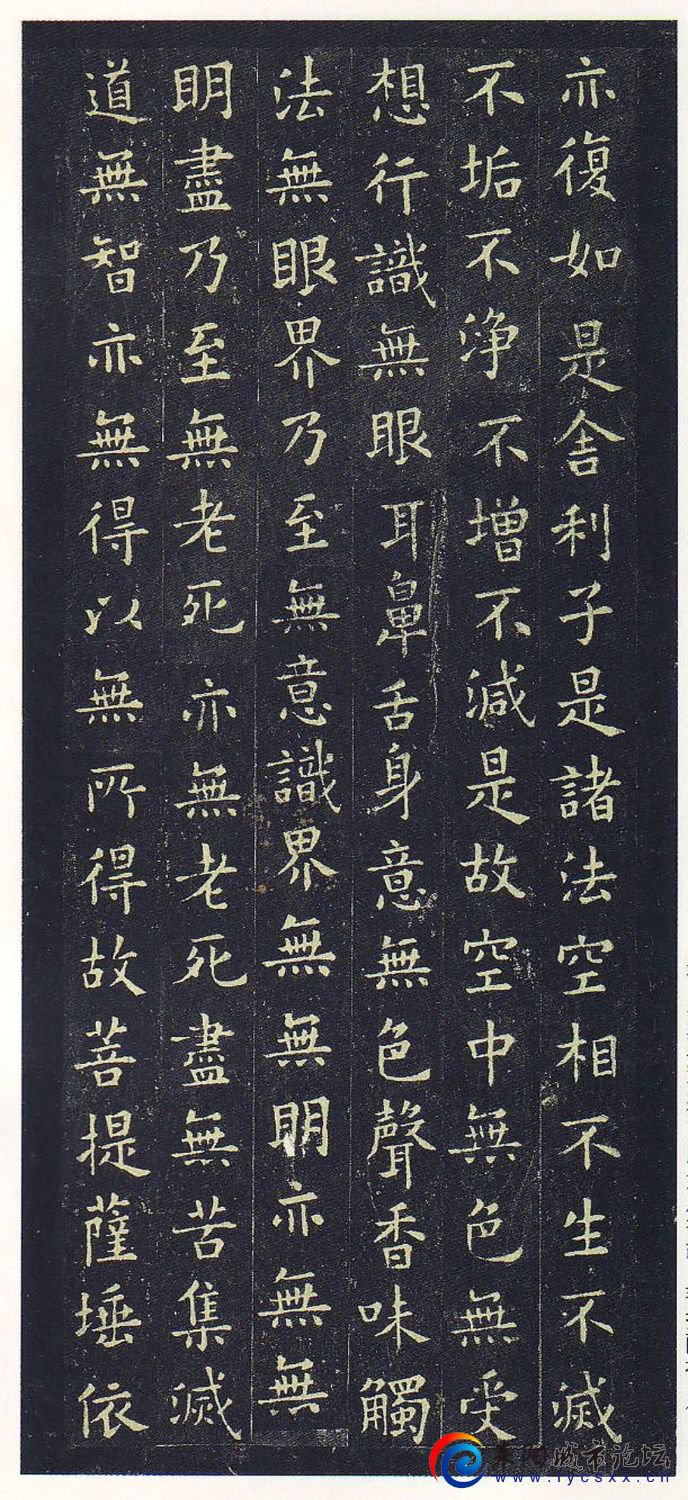 亦復如是舍利子是諸法空相不生不滅
不垢不淨不增不減是故空中無色無受
想行識無眼耳鼻舌身意無色聲香味觸
法無眼界乃至無意識界無無明亦無無
明盡乃至無老死亦無老死盡無苦集滅
道無智亦無得以無所得故菩提薩埵依
莱阳城市论坛
www.lycsxx.cn